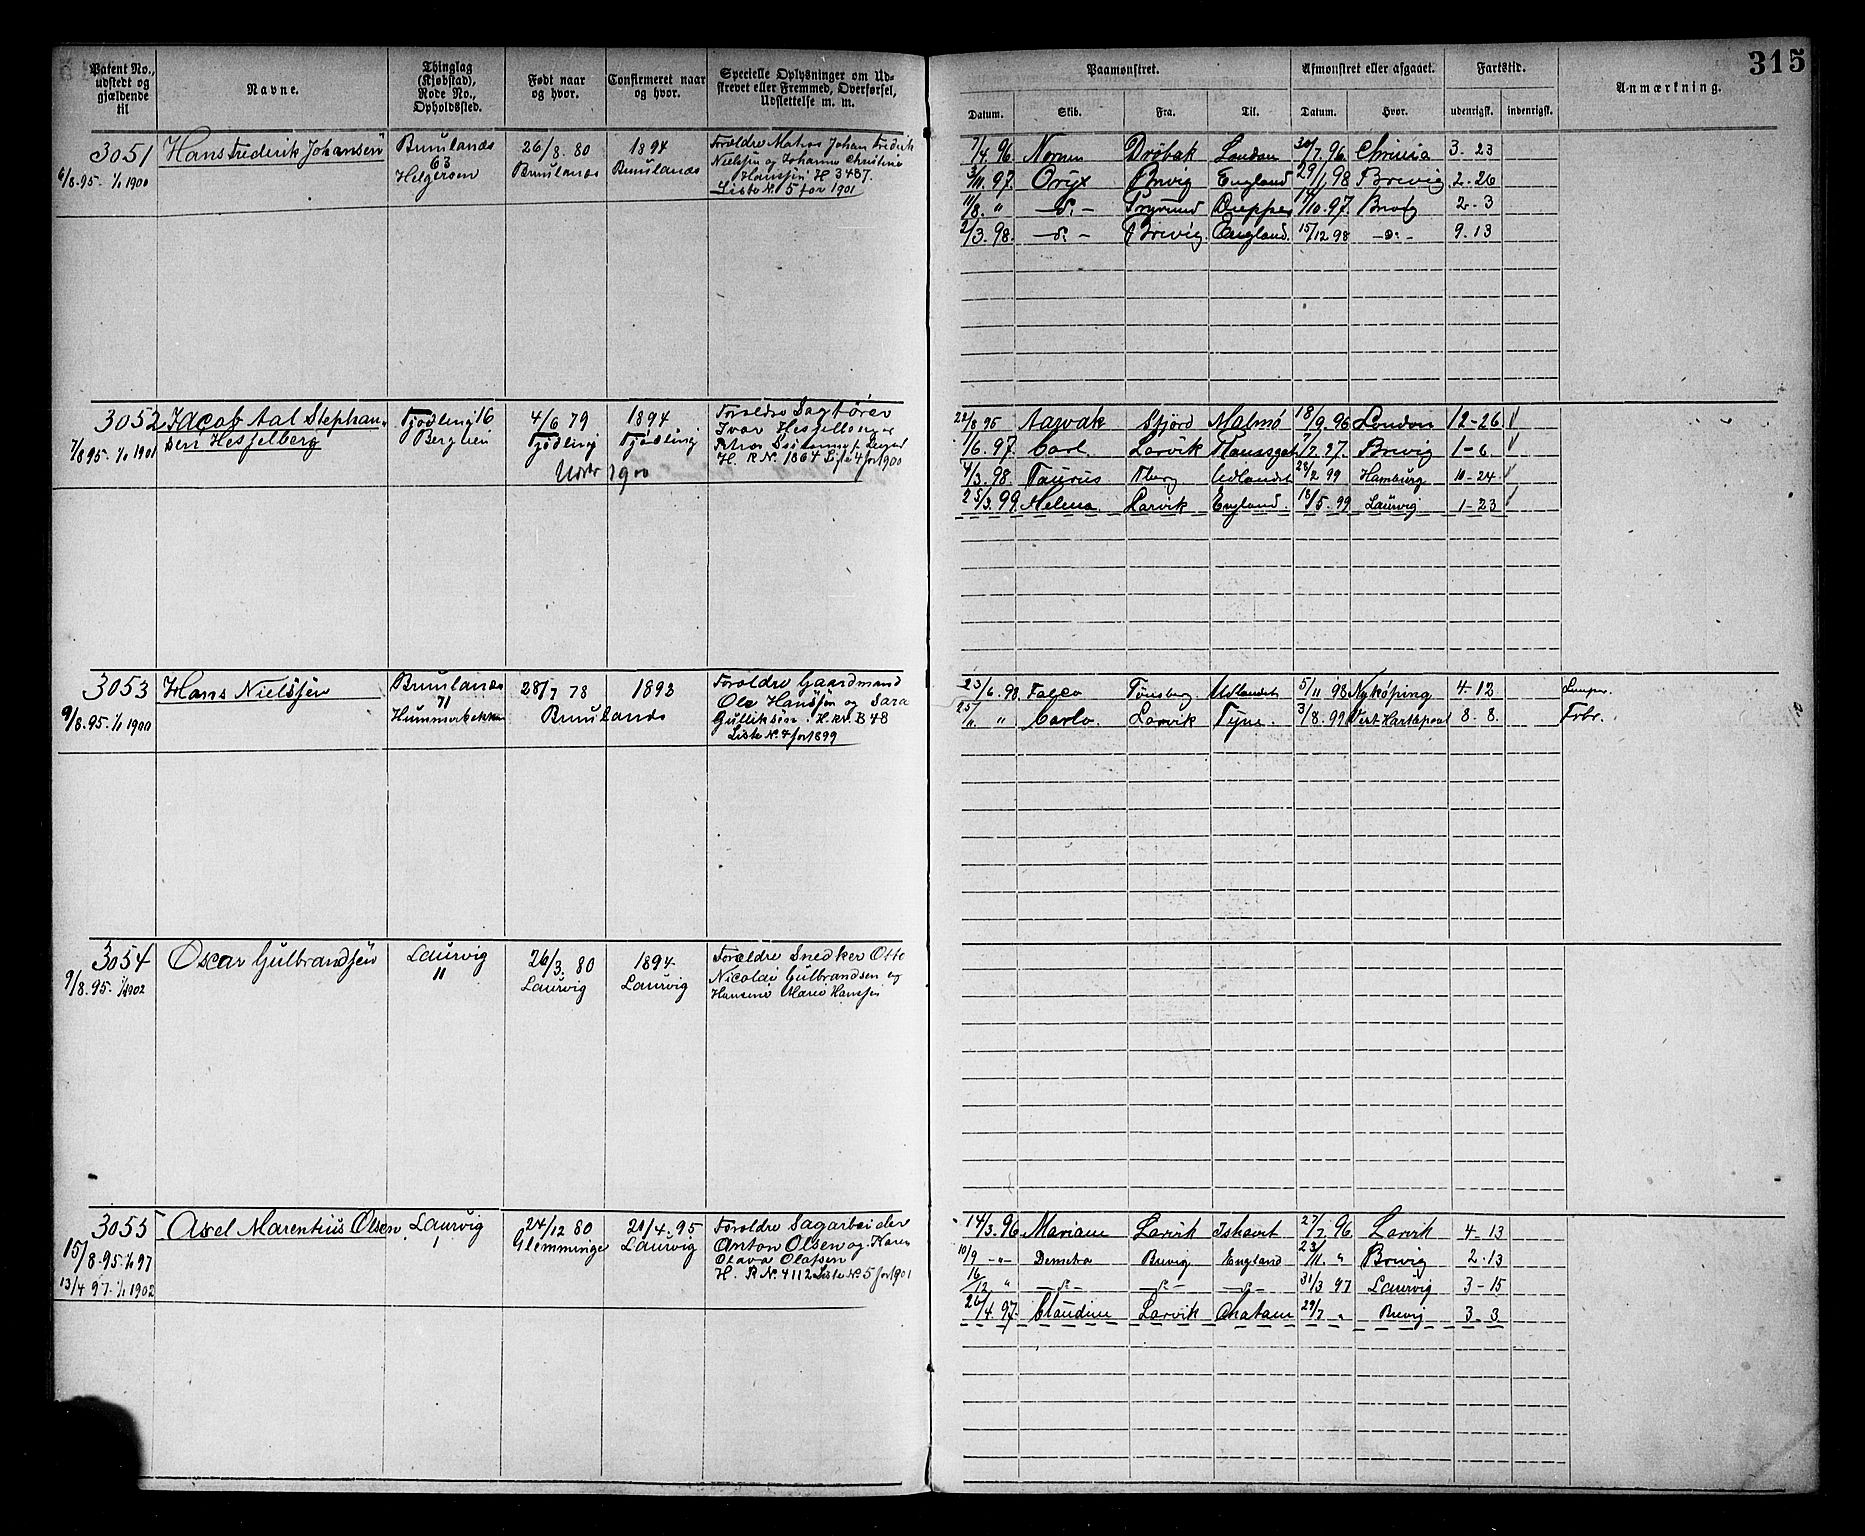 315
Patent No., udstedt og gjældende til
Navne.
Thinglag (Kjøbstad), Rode No., Opholdssted.
Født naar og hvor.
Confirmeret naar og hvor.
Specielle Oplysninger om Udskrevet eller Fremmed, Overførsel, Udslettelse m. m.
Paamønstret.
Afmønstret eller afgaaet.
Fartstid.
Anmærkning.
Datum. Skib. Fra. Til. Datum. Hvor. udenrigsk. indenrigsk.
3051 Hans Frederik Johansen Brunlanæs 26/8. 80 1894 Forældre Matros Johan Fredrik
6/8. 95. 1/1 1900 63 Helgeroen Brunlanæs Brunlanæs Nielsen og Johanne Christine
Hanssen H 3487.
Liste N. 5 for 1901
7/4. 96 Nornen Drøbak London 30/7. 96 3. 23
3/11. 97. Oryx Brevig England 29/1 98 Brevig 2. 26
11/8. " —d:— Dieppe 10. 97. Brevig 2. 3
2/3. 98. —d:— Brevig. England. 15/12 98 —d:— 9. 13
3052 Jacob Aal Stephan- Tjødling 16 4/6 79 1894 Forældre Sagfører
7/8 95. 1/1 1901 sen Hesselberg Berghen Tjødling Tjødling Ivar Hesselberg
1900 H. R. N. 1864 Liste 4 for 1900
22/8 95 Aagvak Sfjord Malmø 18/9. 96 London 12-26
1/6. 97. Carl Larvik Brevig 1-6
4/3. 98. Taurus Tberg Udlandet 28/2 99 Hamburg 10-24
25/3. 99. Helena Larvik England. 18/5. 99 Laurvig 1-23
3053 Hans Nielssen Brunlanæs 28/7 78 1893 Forældre Gaardmand
9/8. 95. 1/1 1900 71 Hummerbakken Brunlanæs Ole Hanssen og Sara
Gulliksen. H. RN. B 48
Liste N. 4 for 1899
23/6. 98. Falco Tønsberg Udlandet 5/11 98 Nykøping 4. 12
25/11. " Carlo Larvik Tyne. 3/8. 99 Vest Hartlepool 8. 8.
3054 Oscar Gulbrandsen Laurvig 26/3. 80 1894 Forældre Snedker Otto
9/8. 95. 1/1 1902 11 Laurvig Laurvig Nicolai Gulbrandsen og
Marie Hanssen
3055 Axel Marentius Olsen Laurvig 24/12 80 21/4. 95 Forældre Sagarbeider
15/8. 95. 1/1 97 1 Glemminge Laurvig Anton Olsen og Karen
13/4 97. 1/1 1902 Olava Olafsen
H. R N. 4112 Liste N. 5 for 1901
14/3. 96 Mariane Larvik Ishavet 27/7. 96 Larvik 4. 13
10/9 -"- Demetra Brevig England 23/11. " Brevig 2. 13
16/12 " —d:— —d:— —d:— 31/3 97 Laurvig 3-15
26/4. 97. Claudine Larvik Chatam 29/7 " Brevig 3. 3